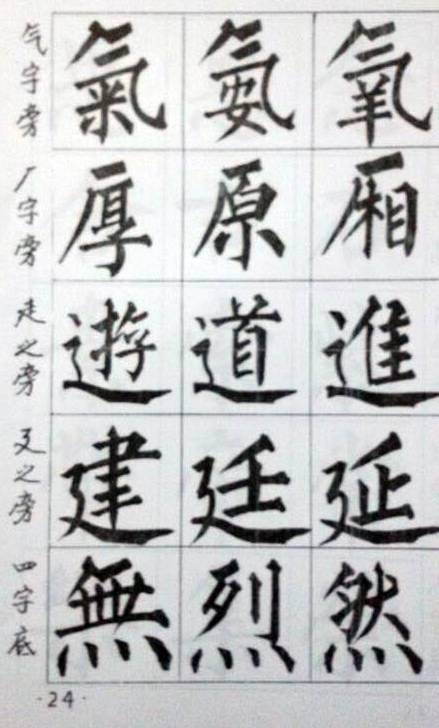 气字旁 氣 氨 氧
厂字旁 厚 原 厢
走之旁 遊 道 進
廴之旁 建 廷 延
四字底 無 烈 然
·24·